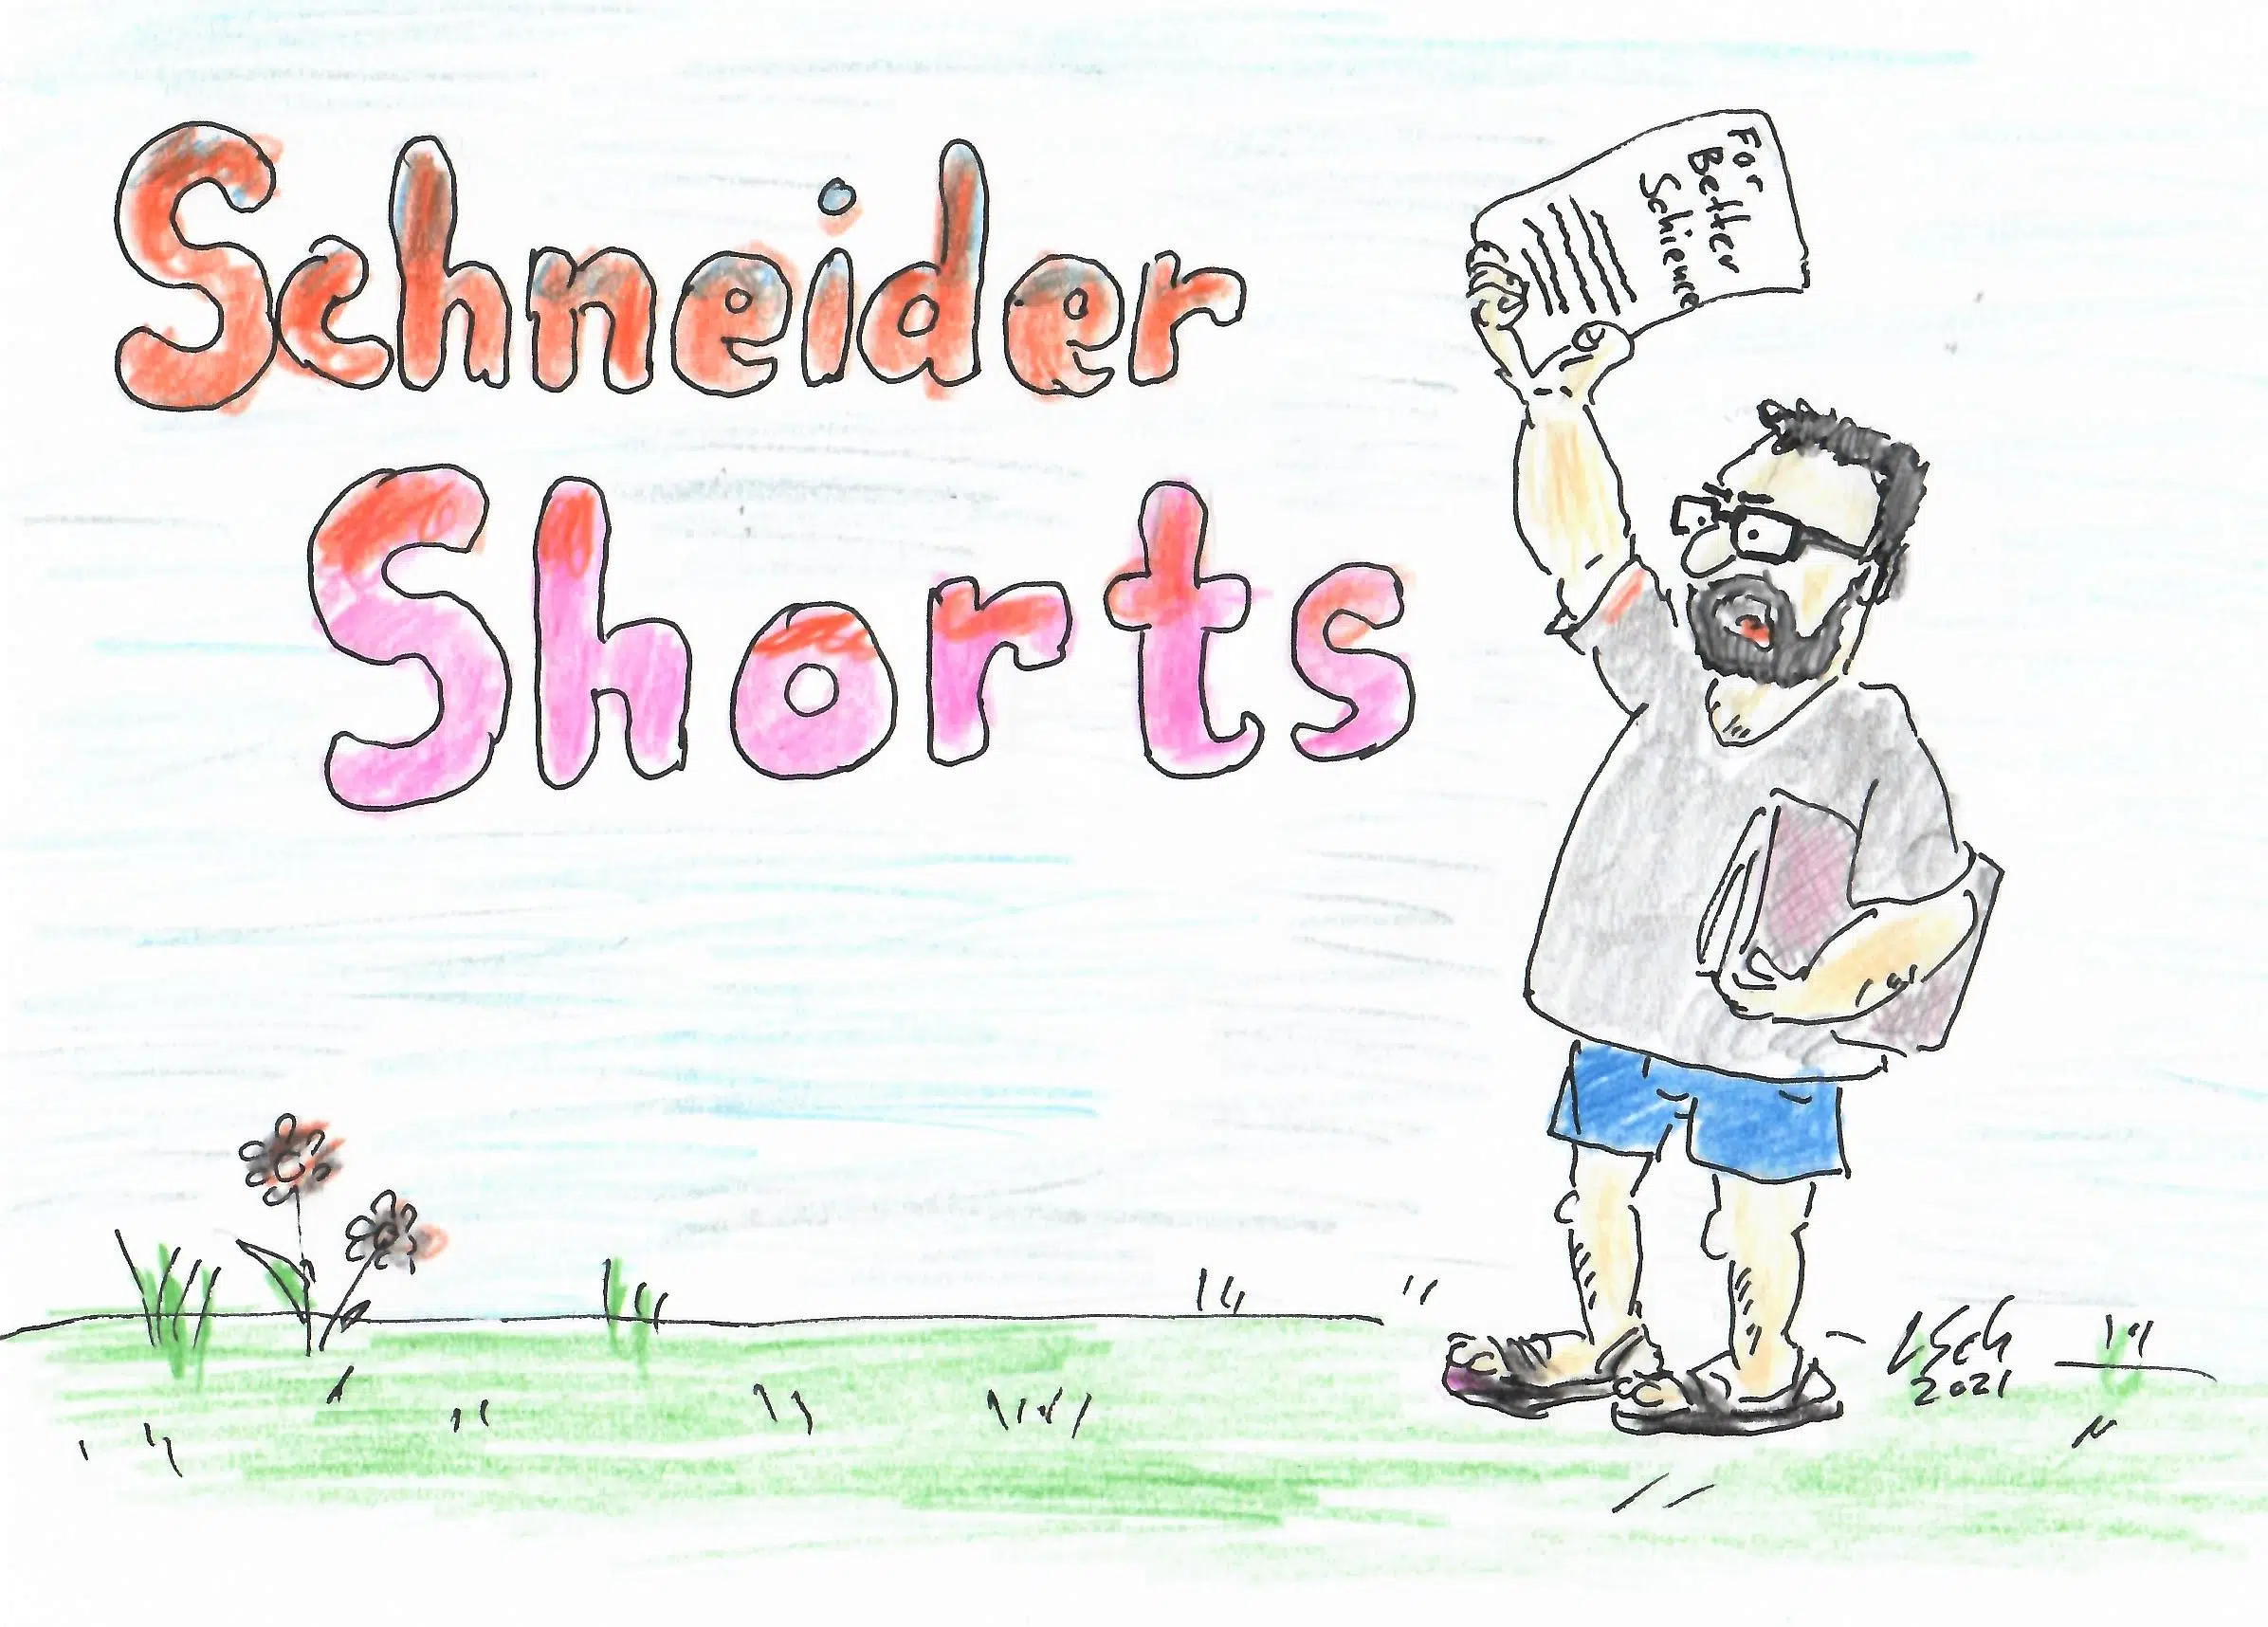 Schneider
Shorts
For
Better
Schience
LSch
2021